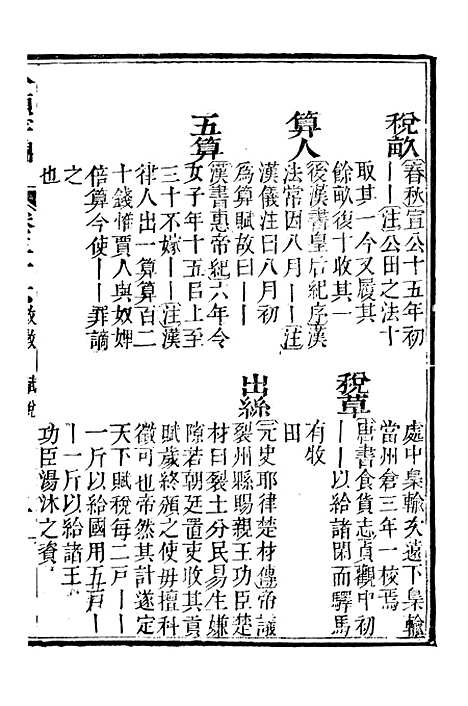 稅畝 春秋宣公十五年初
｜｜注公田之法十
取其一今又履其
餘畝復十收其一
算人 後漢書皇后紀序漢
法常因八月｜｜注
漢儀注曰八月初
爲算賦故曰｜｜
五算 漢書惠帝紀六年令
女子年十五㠯上至
三十不嫁｜｜注漢
律人出一算算百二
十錢惟賈人與奴婢
倍算今使｜｜罪謫
之
也
處中臬輸次遠下臬輸
當州倉三年一校焉
稅草 唐書食貨志貞觀中初
｜｜以給諸閑而驛馬
有牧
田
出絲 元史耶律楚材傳帝議
裂州縣賜親王功臣楚
材曰裂土分民易生嫌
隙若朝廷置吏收其貢
賦歲終頒之使毋擅科
徵可也帝然其計遂定
天下賦稅每二戶｜｜
一斤以給國用五戶｜
｜一斤以給諸王
功臣湯沐之資
賦稅